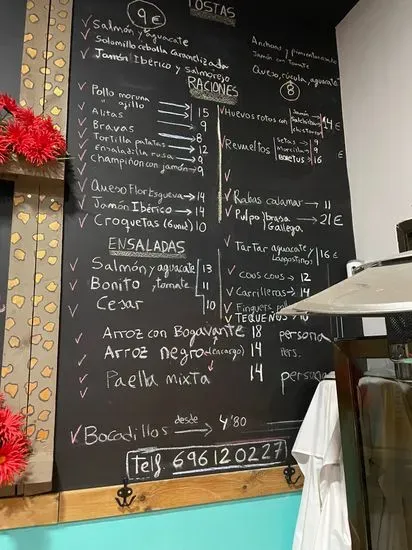 TOSTAS
9 €
Salmón y aguacate
Solomillo cebolla caramelizada
Jamón Ibérico y salmorejo
Anchoas y pimiento
Jamón con Tomate
Queso, rúcula, aguacate
8
RACIONES
Pollo moruno
" ajillo 15
Alitas 9
Bravas 9
Tortilla patatas 8
Ensaladilla rusa 12
Champiñon con jamón 9
Queso Flor Esgueva 14
Jamón Ibérico 14
Croquetas (6unid) 10
Huevos rotos con Jamón 14 €
Salchichas
chistorra
Revueltos Setas 9
Morcilla 9
Boletus 16 €
Rabas calamar 11
Pulpo brasa 21 €
Gallega
Tartar aguacate y 16 €
Langostinos
COUS COUS 12
Carrilleras 14
Fingers
TEQUEÑOS 10
ENSALADAS
Salmón y aguacate 13
Bonito y tomate 11
Cesar 10
Arroz con Bogavante 18 persona
Arroz negro (encargo) 14 pers.
Paella mixta 14 persona
Bocadillos desde 4'80
Telf 696120227